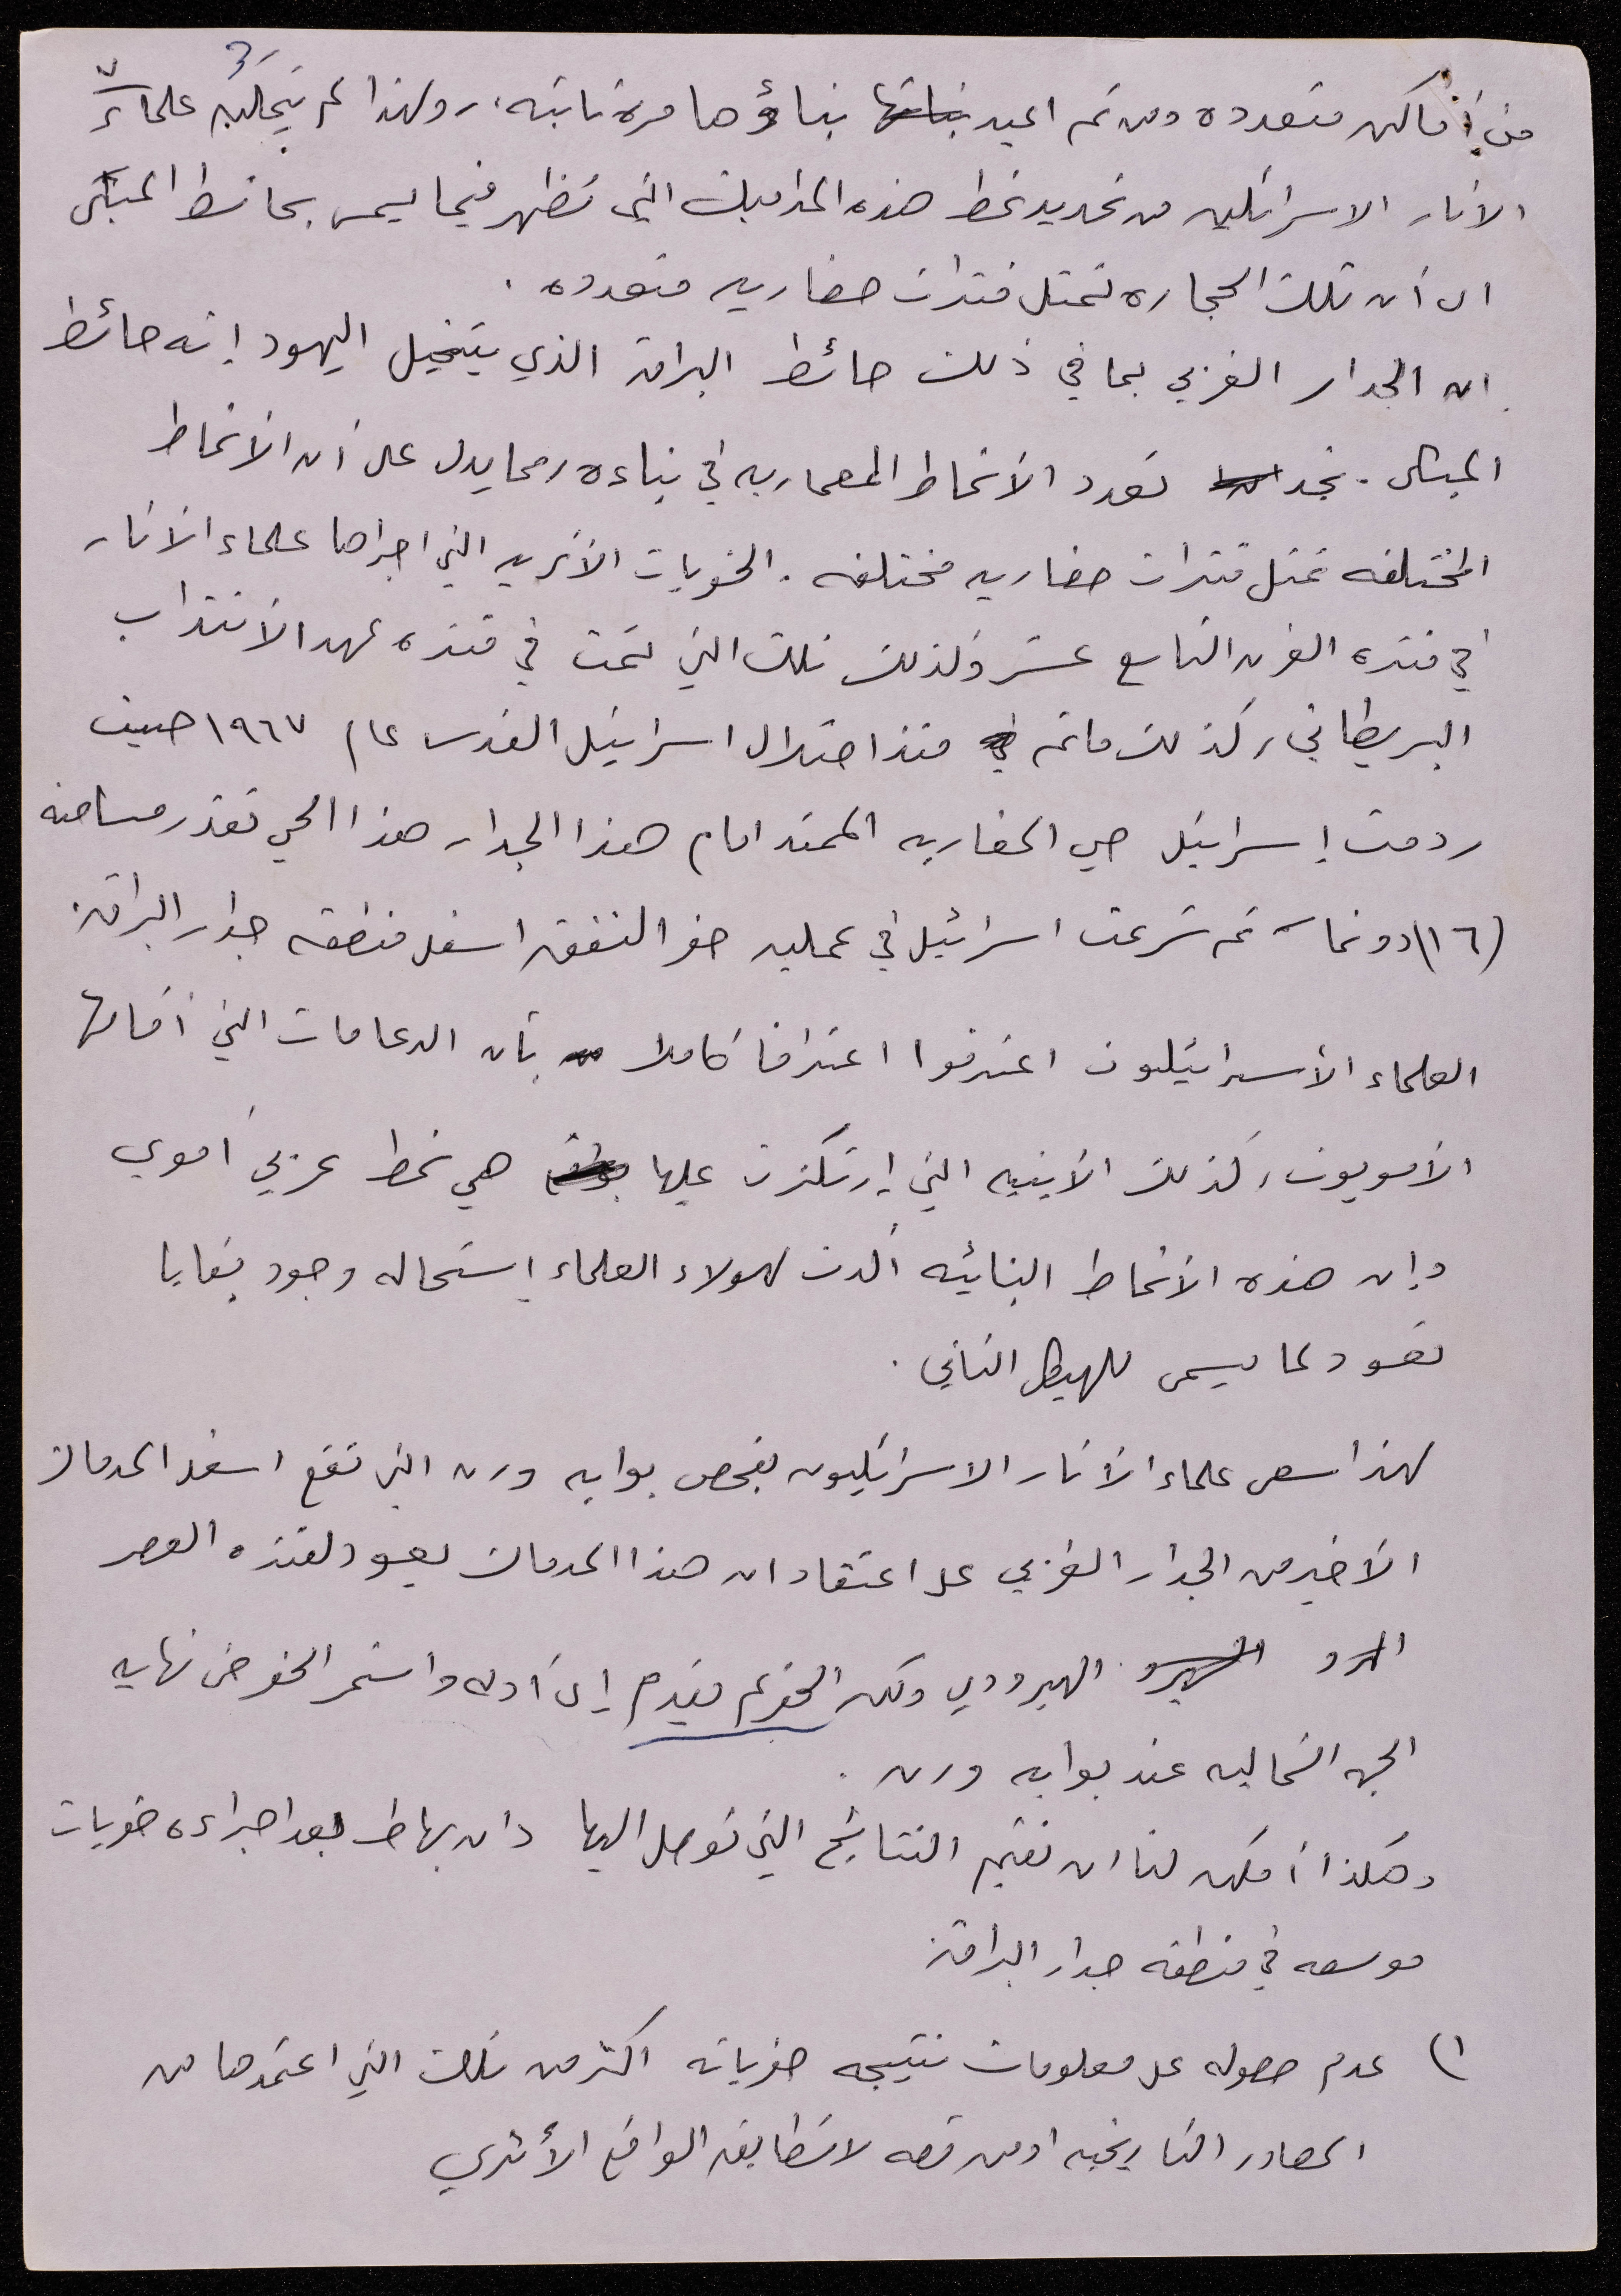 من أماكن متعدده ومن ثم اعيد بناؤها مرة ثانيه، ولهذا لم يتمكن علماء
الاثار الاسرائلين من تحديد نمط هذه المداميك التي تظهر فيما يسمى بحائط المبكى
اى أن تلك الحجاره تمثل فترات حضاريه متعدده.
ان الجدار الغربي بما في ذلك حائط البراق الذي يتخيل اليهود إنه حائط
المبكى. نجد تعدد الأنماط المعماريه في بناءه ومما يدل على أن الأنماط
المختلفه تمثل فترات حضاريه مختلفه. الحفريات الأثريه التي اجراها علماء الأثار
في فتره القرن التاسع عشر وكذلك تلك التي تمت في فتره عهد الأنتداب
البريطاني وكذلك ماتم منذ احتلال اسرائيل القدس عام ١٩٦٧ حيث
ردمت إسرائيل حي المغاربه الممتد امام هذا الجدار هذا الحي تقدر مساحته
(١٦) دونما ثم شرعت اسرائيل في عمليه حفر النفق اسفل منطقه جدار البراق.
العلماء الأسرائيليون اعترفوا اعترافا كاملا بأن الدعامات التي أقامها
الأمويون وكذلك الأبنيه التي إرتكزت عليها هي نمط عربي أموي
وإن هذه الأنماط البنائيه أكدت لهولاء العلماء إستحاله وجود بقايا
تعود لما يسمى للهيكل الثاني.
لهذا سعى علماء الأثار الاسرائيليون بفحص بوابه ورن التي تقع اسفل المدماك
الأخير من الجدار الغربي على اعتقاد ان هذا المدماك يعود لفتره العصر
الهيرودي ولكن الحفر لم يقدم إى أدله واستمر الحفر حتى نهايه
الجهه الشماليه عند بوابه ورن.
وهكذا أمكن لنا ان نقيم النتائج التي توصل اليها دان بهاط بعد اجراءه حفريات
موسعه في منطقه جدار البراق:
١) عدم حصوله على معلومات نتيجه حفرياته اكثر من تلك التي اعتمدها من
المصادر التاريخيه او من قصه لاتطابق الواقع الأثري